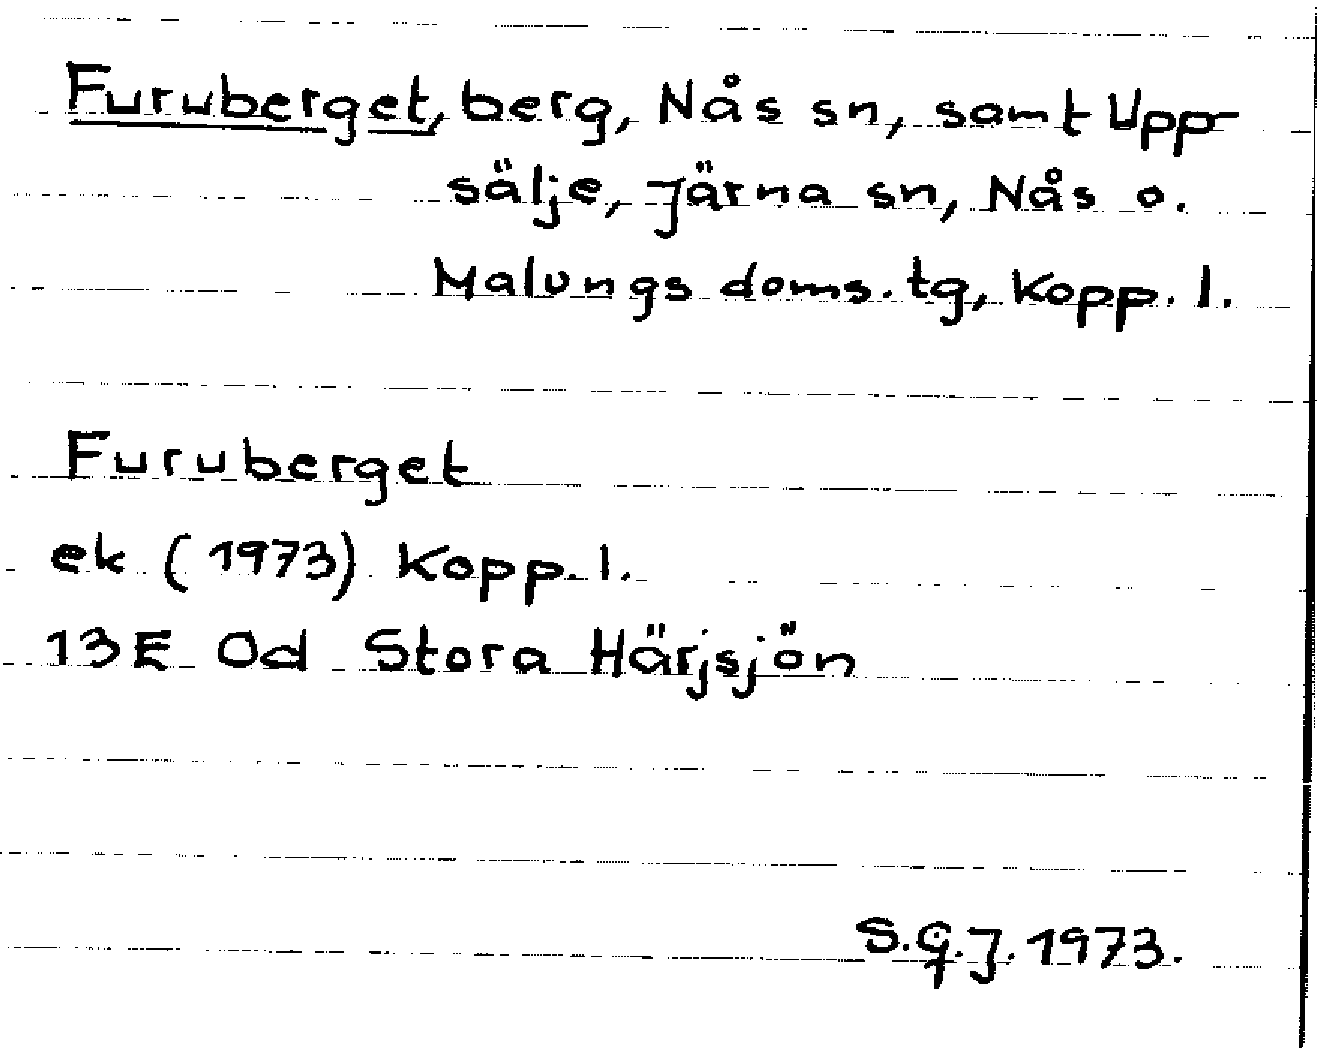 Furuberget, berg, Nås sn, samt Upp-
sälje, Järna sn, Nås o.
Malungs doms.tg, Kopp. l.
Furuberget
ek (1973) Kopp. l.
13E 0d Stora Härjsjön
S.G.J. 1973.